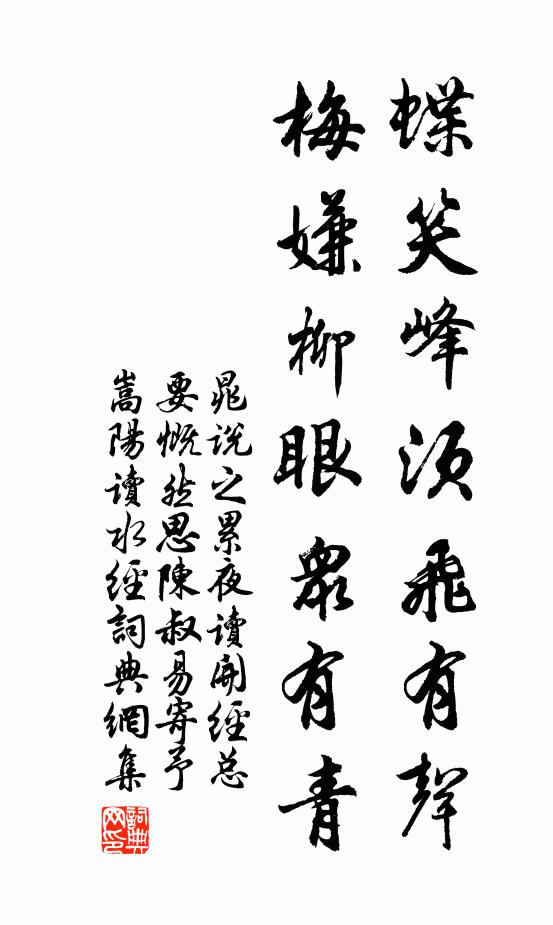 蝶笑峰须飛有聲
梅嫌柳眼眾有青
晁说之累夜读開經总
要慨然思陳叔易寄予
嵩陽读水經詞典網集
詞典网印